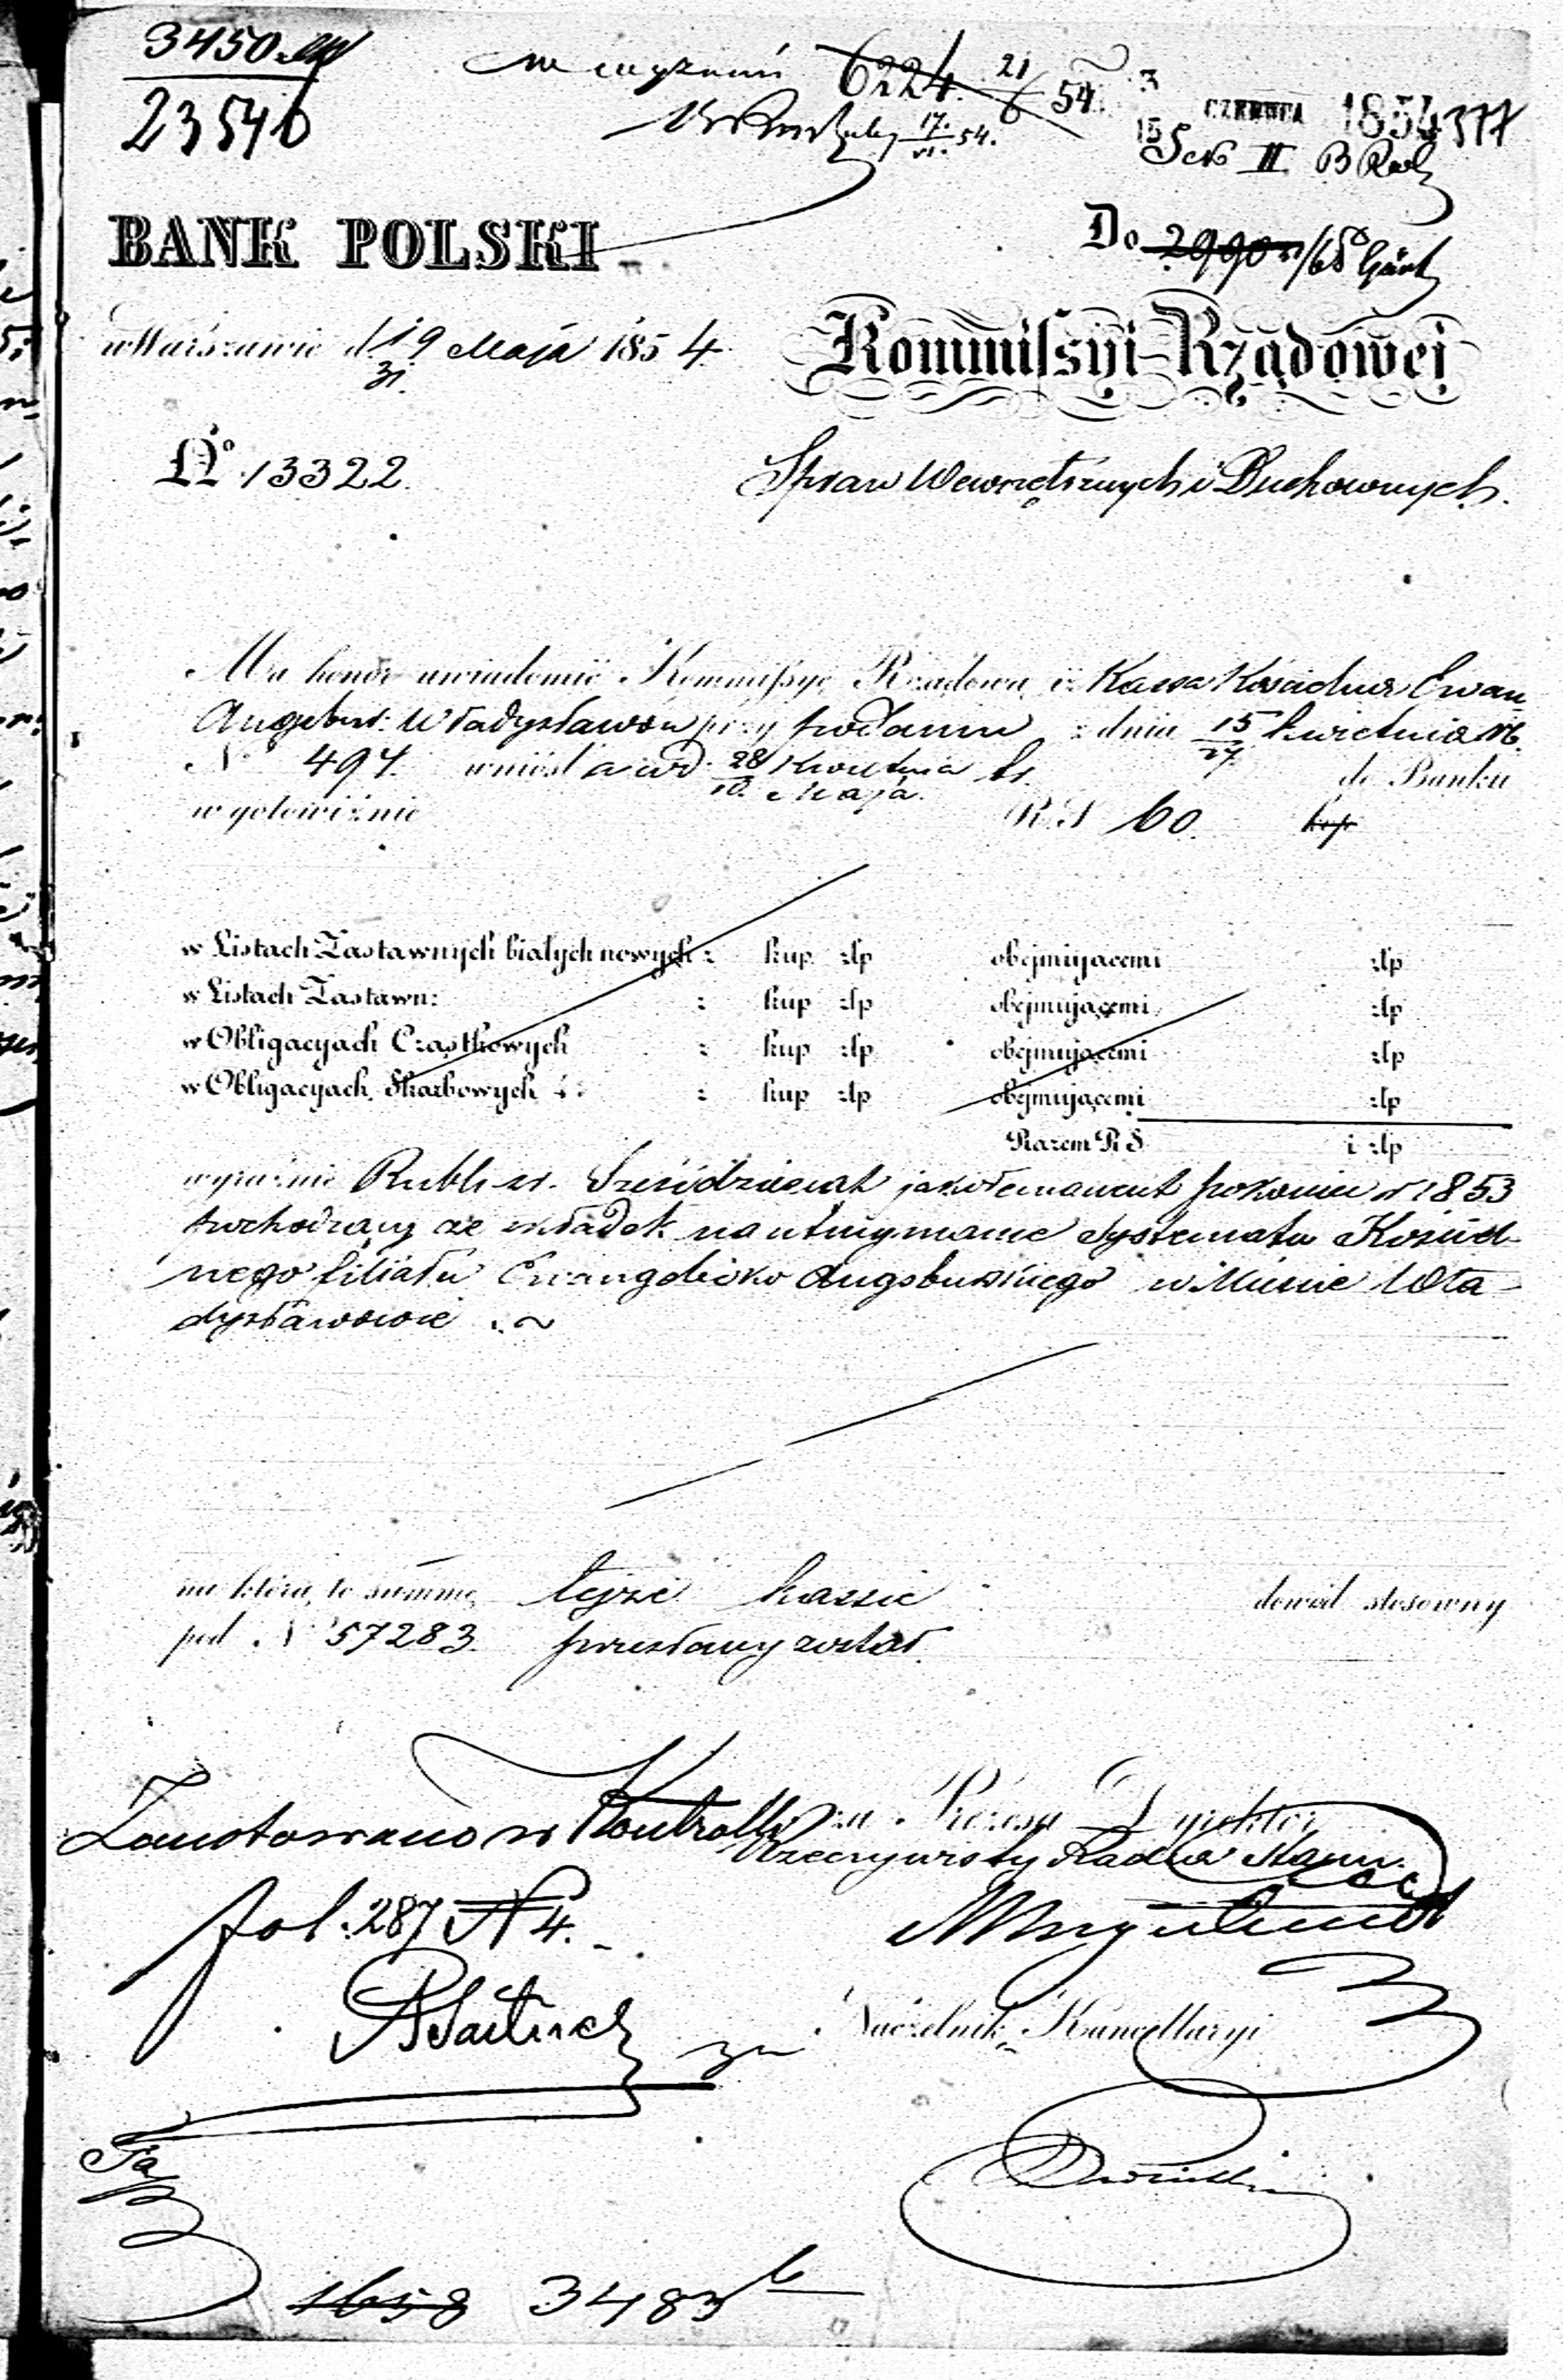 3450
23546
6224. 21/6 54.
17/VI 54.
3
15 CZERWCA 1854 377
Sek II B Rad
BANK POLSKI
Do 2990
Kommissyi Rządowej
w Warszawie d 19/31 Maja 1854
No 13322.
Spraw Wewnętrznych i Duchownych.
Ma honor uwiadomić Kommissyę Rządową iż Kassa Kościelna Ewan.
Augsbur: Władysławów przy podaniu z dnia 15/27 Kwietnia rb.
N 497. wniosła w d. 28 Kwietnia/10. Maja. br. do Banku
w gotowiźnie RS 60. kop
w Listach Zastawnych białych nowych : kup złp obejmującemi złp
w Listach Zastawn: : kup złp obejmującemi złp
w Obligacyach Cząstkowych : kup złp obejmującemi złp
w Obligacyach Skarbowych : kup złp obejmującemi złp
Razem R S i złp
wyraźnie Rubli sr. Sześćdziesiąt jako remanent po koniec r 1853
pochodzący ze składek na utrzymanie systematu Kościel-
nego filiału Ewangelicko Augsburskiego w Mieście Wła-
dysławowie
na którą to summę tejże kassie dowód stosowny
pod N 57283. przesłany został.
Zanotowano w Kontrolli
za Prezesa Dyrektor
Rzeczywisty Radca Stanu
fol. 287 N 4.
za Naczelnik Kancellaryi
1658 3483